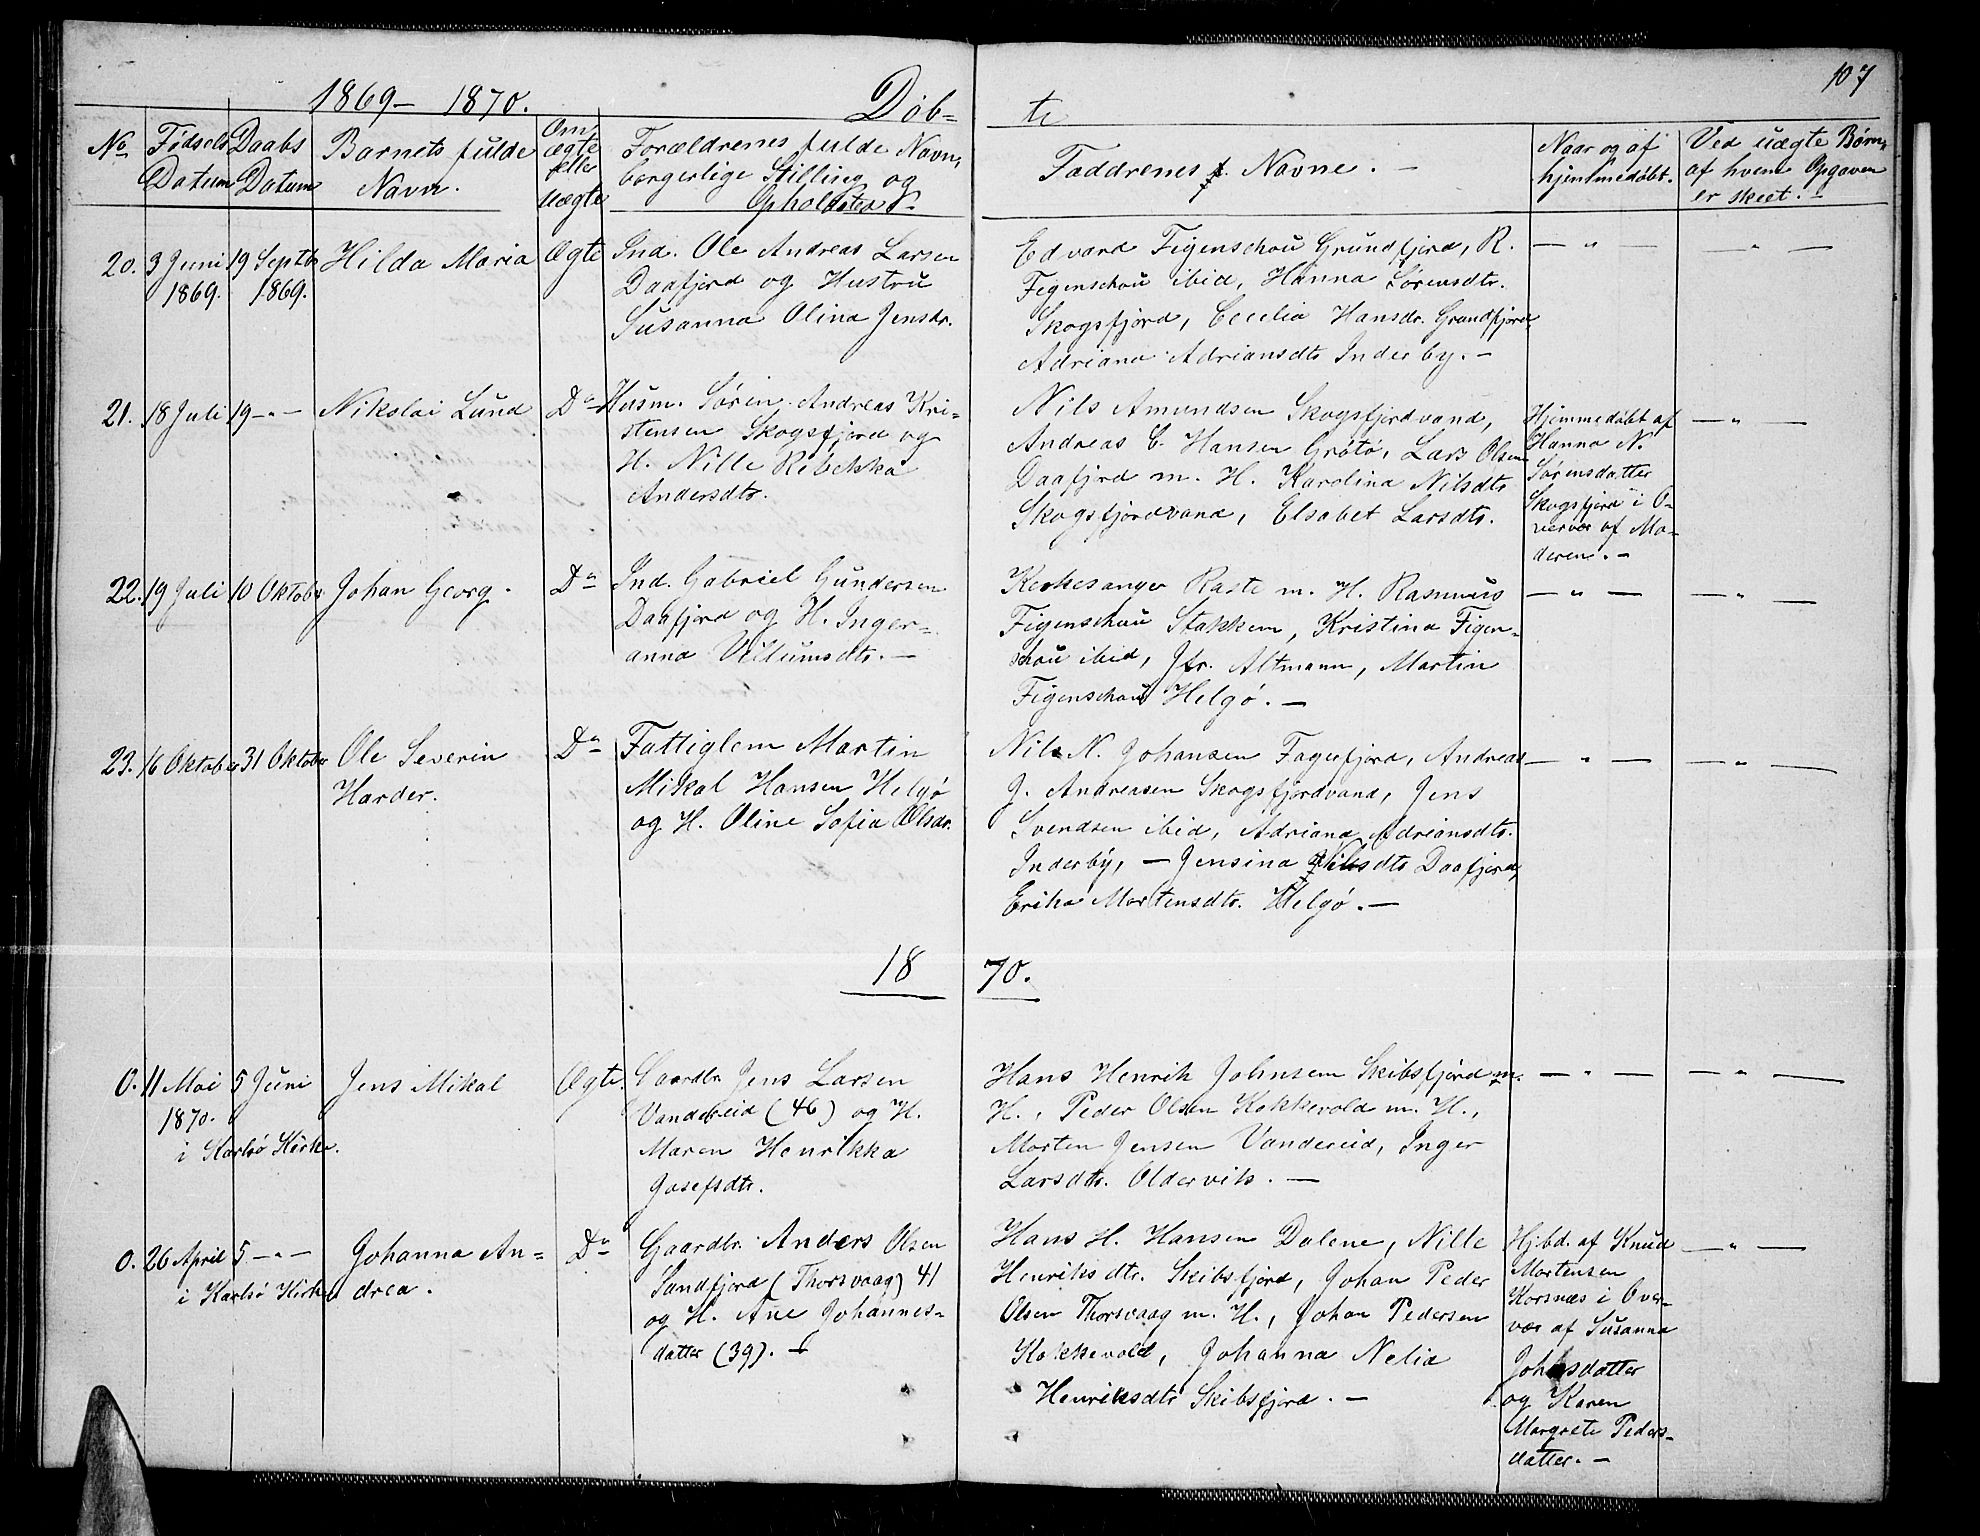 107
1869 – 1870. Döb= te
No
Födsels Datum
Daabs Datum
Barnets fulde Navn.
Om Ægte eller Uægte
Forældrenes fulde Navn,
borgerlige Stilling og
Opholdsted.
Faddrenes f. Navne. –
Naar og af
hjemmedöbt.
Ved uægte Börn,
af hvem Opgaven
er skeet. –
20. 3 Juni 19 Septbr Hilda Maria Ægte
1869. 1869.
Ind. Ole Andreas Larsen
Daafjord og Hustru
Susanna Olina Jensdr.
Edvard Figenschou Grundfjord, R.
Figenschou ibid, Hanna Sörensdtr.
Skogsfjord, Cecilia Hansdr. Grundfjord
Adriana Adriansdtr Inderby. –
— " —
— " —
21. 18 Juli 19 –"– Nikolai Lund Do
Husm. Sörin Andreas Kri-
stensen Skogsfjord og
H. Nille Rebekka
Andersdtr.
Nils Amundsen Skogsfjordvand,
Andreas C. Hansen Grötö, Lars Olsen
Daafjord m. H. Karolina Nilsdtr
Skogsfjordvand, Elsabet Larsdtr.
Hjemmedöbt af
Hanna N.
Sörensdatter
Skogsfjord i O-
vervær af Mo-
deren. –
— " —
22. 19 Juli 10 Oktober Johan Georg. Do
Ind. Gabriel Gundersen
Daafjord og H. Inger=
anna Villumsdtr. –
Kirkesanger Raste m. H. Rasmus
Figenschou Stakken, Kristina Figen-
schou ibid, Jfr. Altmann, Martin
Figenschou Helgö. –
— " —
— " —
23. 16 Oktober 31 Oktober Ole Severin Do
Harder.
Fattiglem Martin
Mikal Hansen Helgö
og H. Oline Sofia Olsdr.
Nils N. Johansen Fagerfjord, Andreas
J. Andreasen Skogsfjordvand, Jens
Svendsen ibid, Adriana Adriansdtr.
Inderby, – Jensina Nilsdtr Daafjord,
Erika Mortensdtr. Helgö. –
— " —
— " —
18 70.
0. 11 Mai 5 Juni Jens Mikal Ægte.
1870.
i Karlsö Kirke.
Gaardbr. Jens Larsen
Vandereid (46) og H.
Maren Henrikka
Josefsdtr.
Hans Henrik Johnsen Skibsfjord m.
H., Peder Olsen Kokkevold m. H.,
Morten Jensen Vandereid, Inger
Larsdtr. Oldervik. –
— " —
— " —
0. 26 April 5 –"– Johanna An= Do
i Karlsö Kirke drea.
Gaardbr. Anders Olsen
Sandfjord (Thorsvaag) 41
og H. Ane Johannes-
datter (39). –
Hans H. Hansen Dalene, Nille
Henriksdtr. Skibsfjord, Johan Peder
Olsen Thorsvaag m. H., Johan Pedersen
Kokkevold, Johanna Nelia
Henriksdtr Skibsfjord. –
Hjbd. af Knud
Mortensen
Korsnæs i Over-
vær af Susanna
Johnsdatter
og Karen
Margrete Peders-
datter. –
— " —